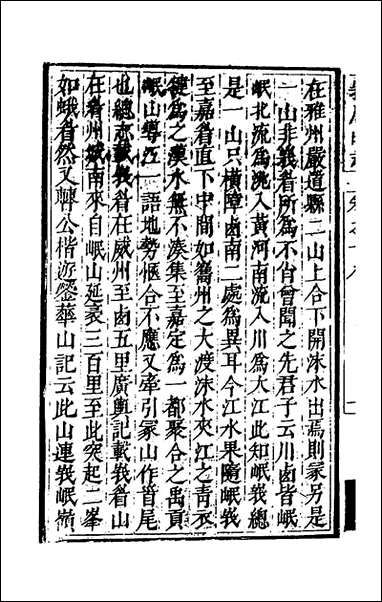 在雅州嚴道縣二山上合下開沫水出焉則冡另是
一山非峩眉所為不肖曾聞之先君子云川鹵皆岷
岷北流為洮入黃河南流入川為大江此知岷峩總
是一山只橫障鹵南二處為異耳今江水果隨岷峩
至嘉眉直下中間如雟州之大渡沫水夾江之青衣
犍為之漢水無不湊集至嘉定為一都聚合之禹貢
岷山導江一語地勢愜合不應又牽引冡山作首尾
也總志載峩眉在威州至鹵五里廣輿記載峩眉山
在眉州城南來自岷山延袤三百里至此突起二峯
如蛾眉然又韓公楷遊瑩華山記云此山連峩岷嶺